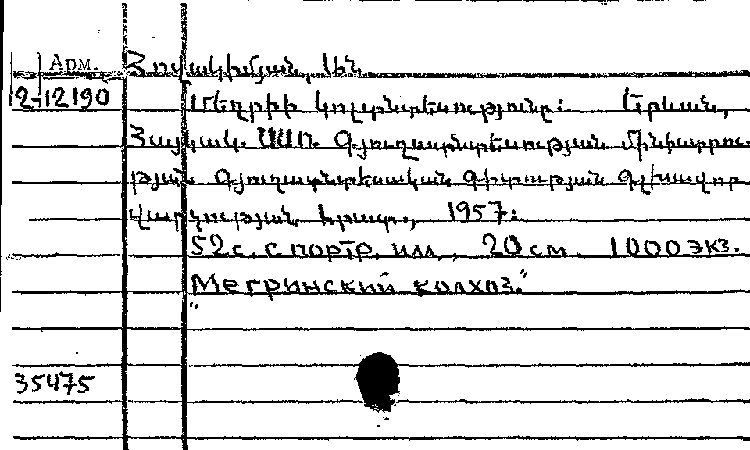 Арм.
2-12190
Հովակիմյան, Լ.Ն.
Մեղրիի կոլտնտեսությունը: Երևան,
Հայկակ. ՍՍՌ Գյուղատնտեսության մինիստրու-
թյան Գյուղատնտեսական գիտության գլխավոր
վարչության հրատ., 1957:
52 с. с портр. илл., 20 см. 1000 экз.
"Мегринский колхоз."
35475